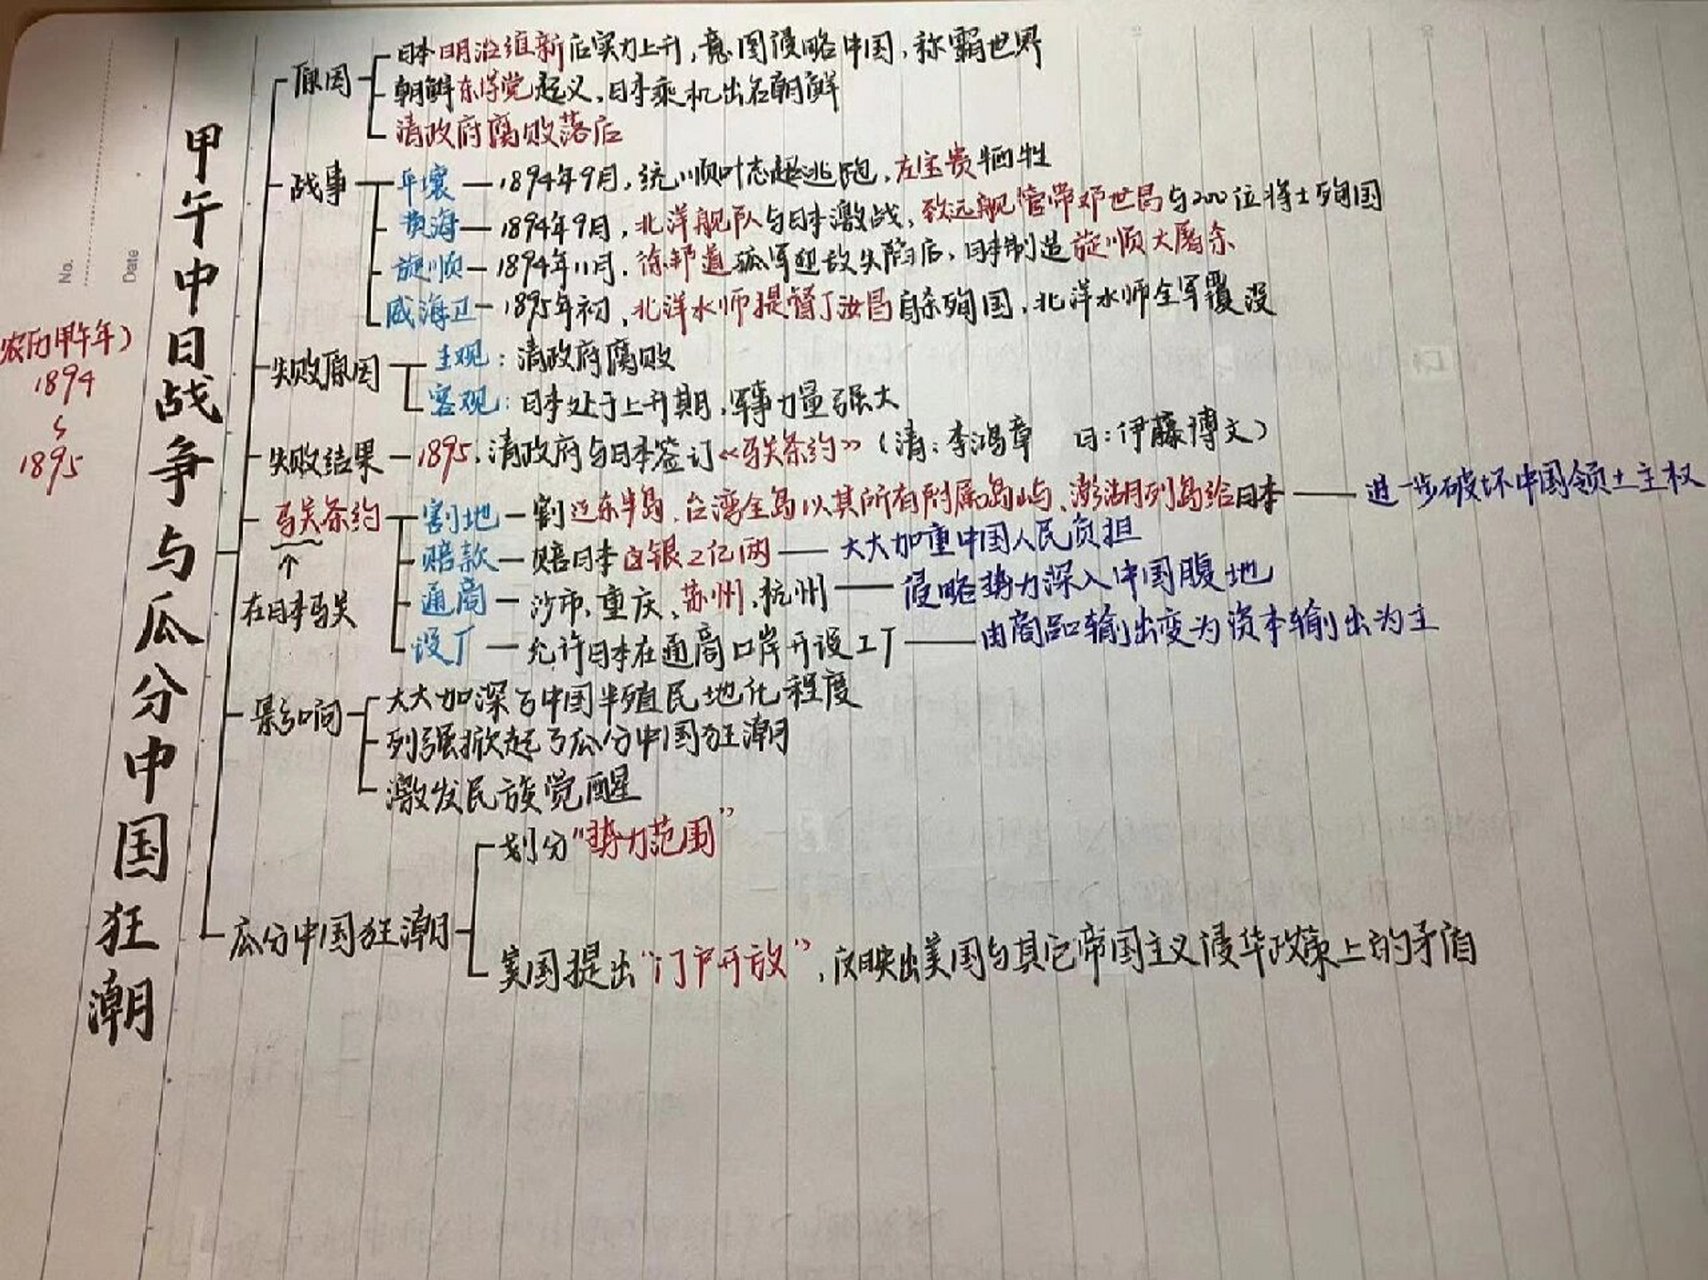 No.
Date
甲午中日战争与瓜分中国狂潮
(农历甲午年)
1894
1895
原因
日本明治维新后实力上升,意图侵略中国,称霸世界
朝鲜东学党起义,日本乘机出名朝鲜
清政府腐败落后
战事
平壤—1894年9月,统顺叶志超逃跑,左宝贵牺牲
黄海—1894年9月,北洋舰队与日本激战,致远舰管带邓世昌与200位将士殉国
旅顺—1894年11月,徐邦道孤军迎敌失陷后,日本制造旅顺大屠杀
威海卫—1895年初,北洋水师提督丁汝昌自杀殉国,北洋水师全军覆没
失败原因
主观:清政府腐败
客观:日本处于上升期,军事力量强大
失败结果—1895,清政府与日本签订《马关条约》(清:李鸿章 日:伊藤博文)
马关条约
在日本马关
割地—割辽东半岛、台湾全岛以其所有附属岛屿、澎湖列岛给日本——进一步破坏中国领土主权
赔款—赔日本白银2亿两——大大加重中国人民负担
通商—沙市、重庆、苏州、杭州——侵略势力深入中国腹地
设厂—允许日本在通商口岸开设工厂——由商品输出变为资本输出为主
影响
大大加深了中国半殖民地化程度
列强掀起了瓜分中国狂潮
激发民族觉醒
瓜分中国狂潮
划分“势力范围”
美国提出“门户开放”,反映出美国与其它帝国主义侵华政策上的矛盾